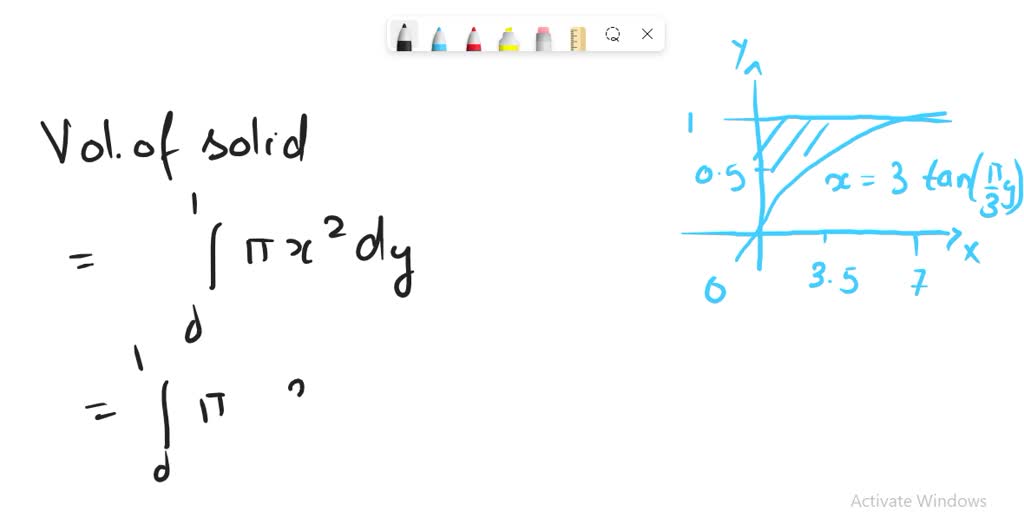 Vol. of solid
= ∫₀¹ π x² dy
= ∫₀¹ π
y
1
0.5
x = 3 tan(π/3 y)
0
3.5
7
x
Activate Windows